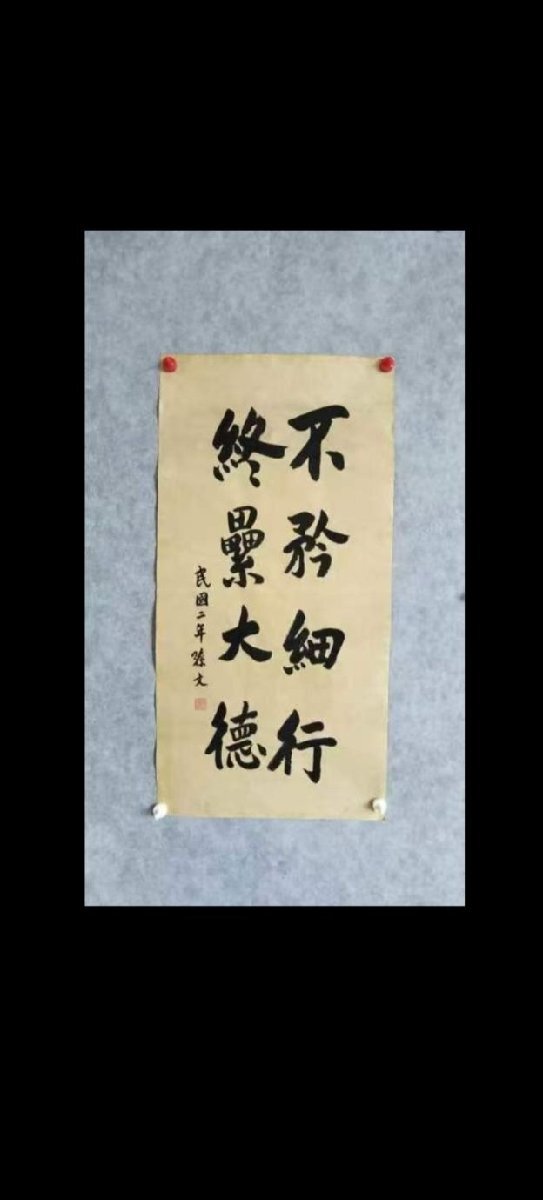 不矜細行
終纍大德
民國二年孫文